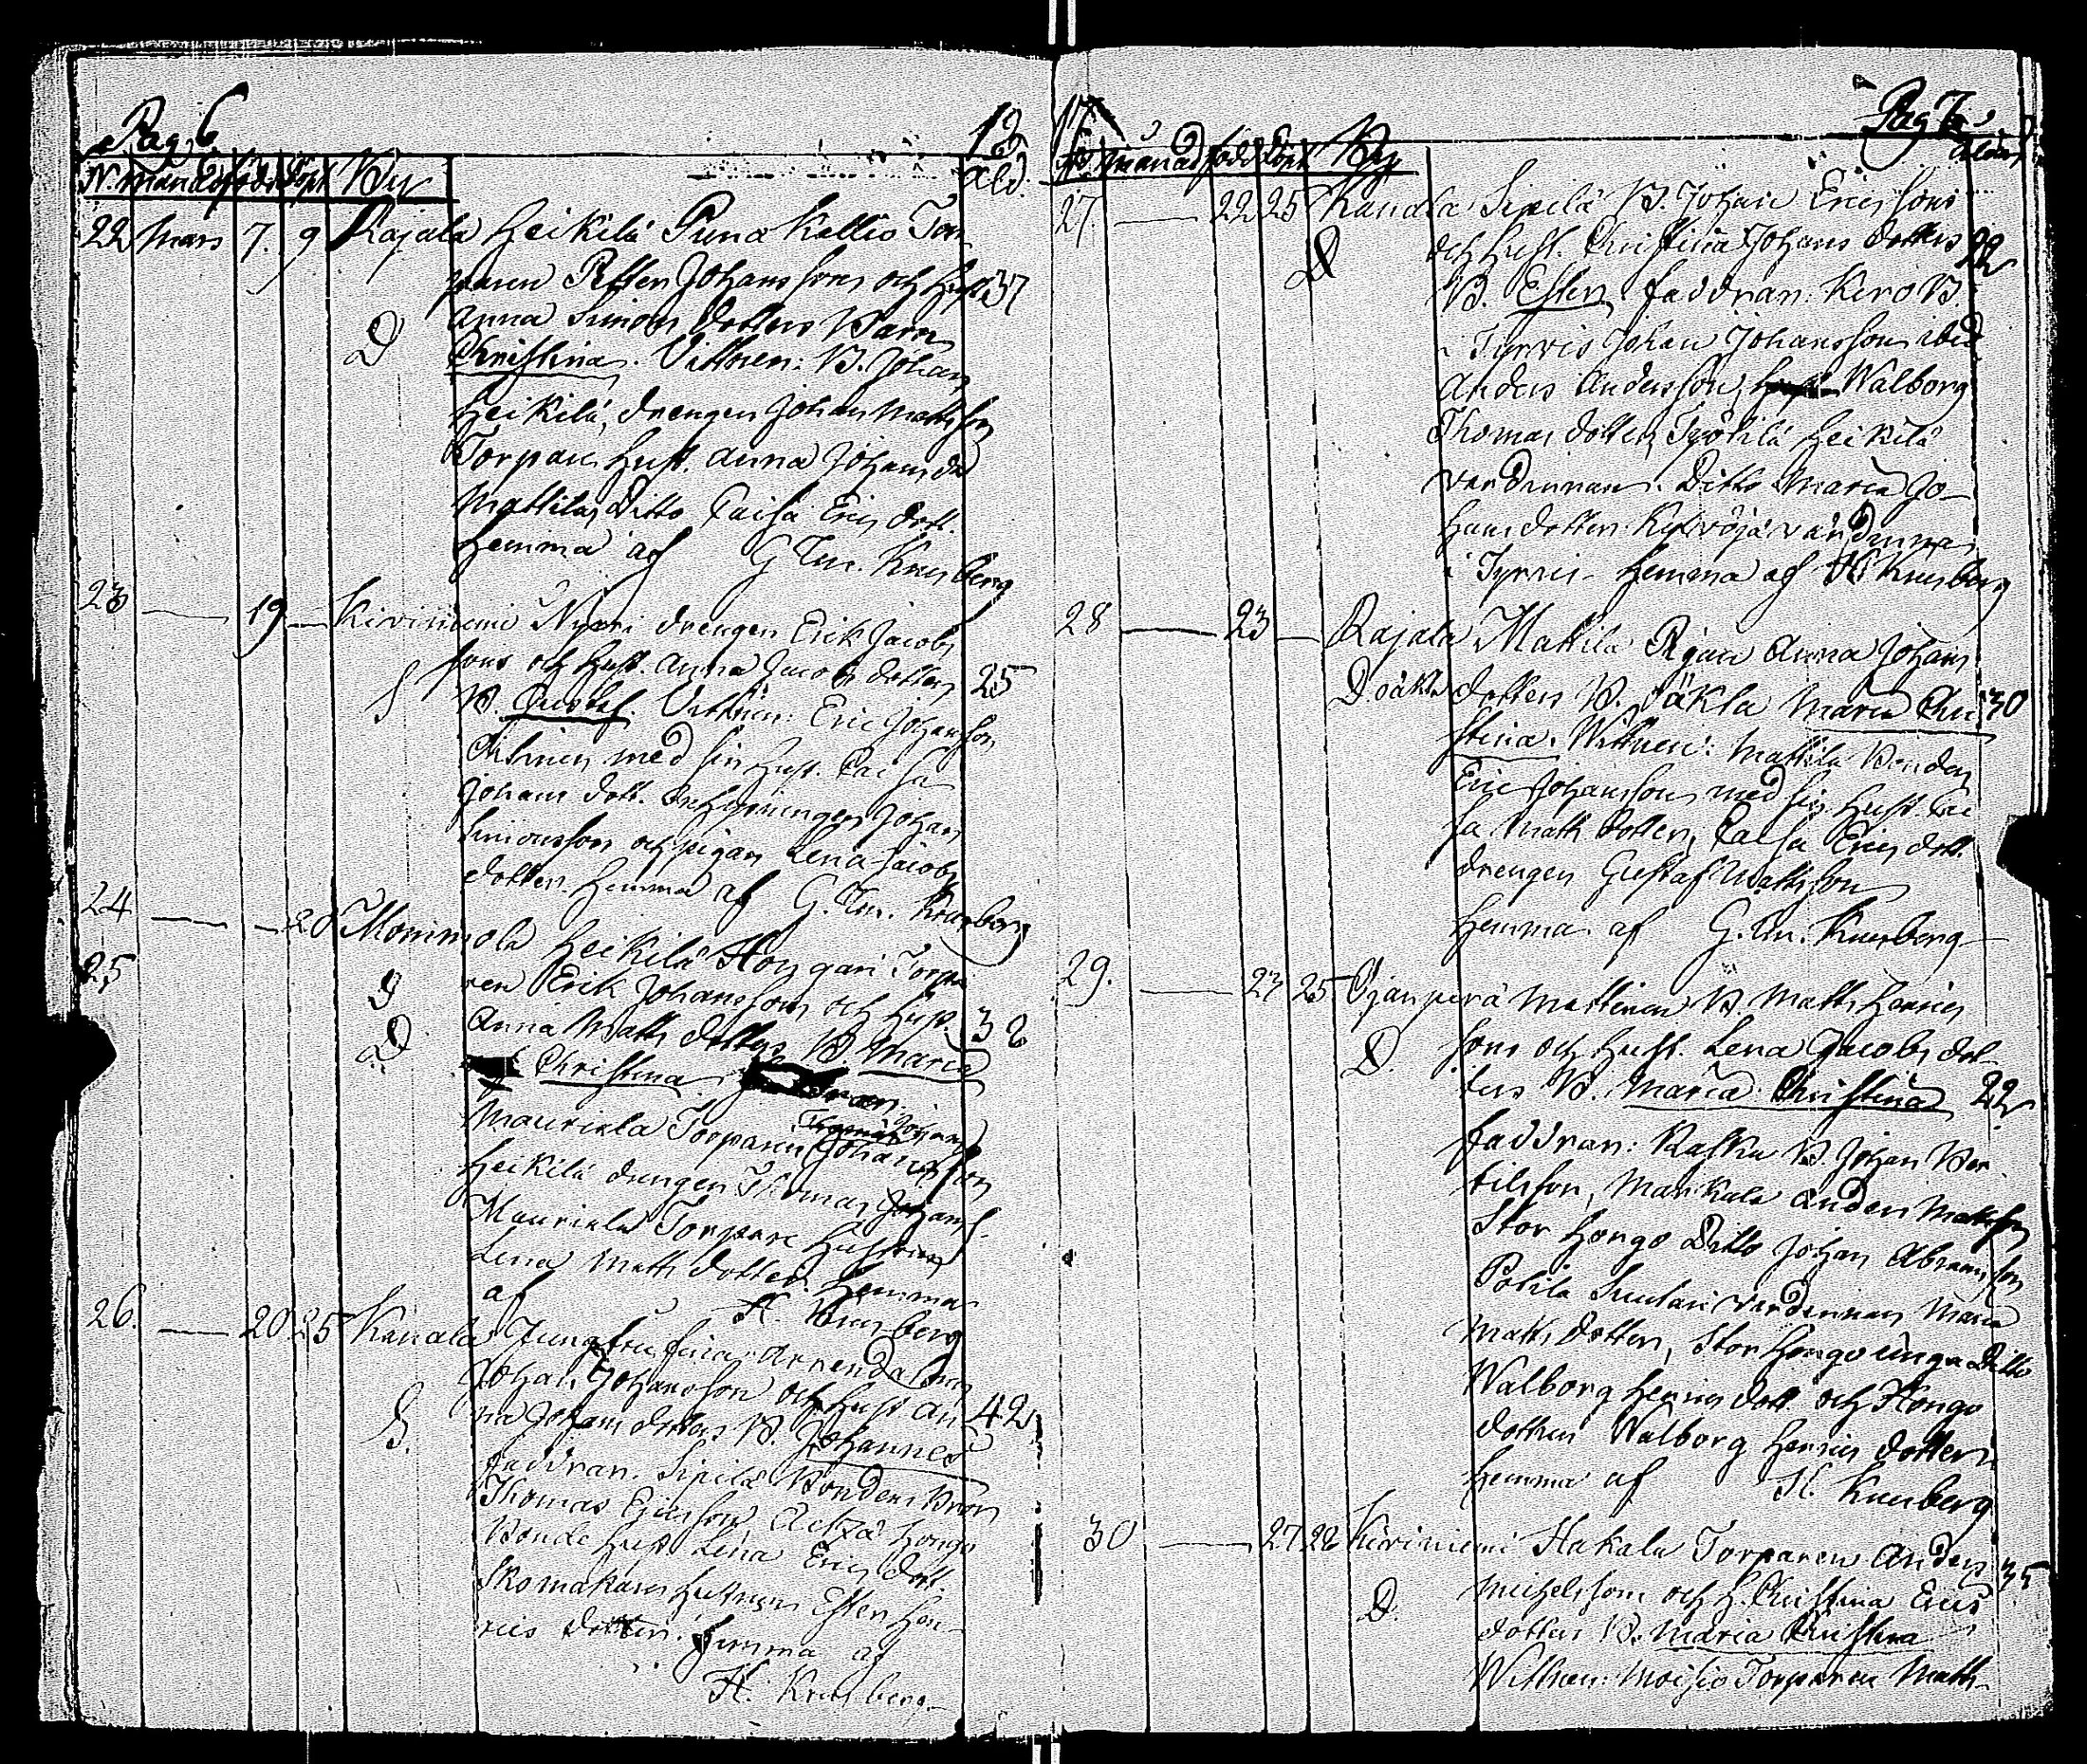 Pag 6
N. månad född döpt By
Åld.
22 Mars 7. 9 Rajala Heikilä Puna Kallio Tor
paren Petter Johanssons och Hust 37
D Anna Simons dotters Barn
Christina. Vittnen: B. Johan
Heikilä, drengen Johan Mattsson
Torpare Hust. Anna Johans dr
Mattila, Ditto Caisa Erics dott.
Hemma af G. Em. Krusberg
23 — 19 — Kiviniemi Nyyri drengen Erik Jacobs
sons och Hust. Anna Jacobs dotters 25
S B. Gustaf. Vittnen: Eric Johansson
med sin Hust. Caisa
Johans dott. Johan
Simonsson och pigan Lena Jacobs
dotter. Hemma af G. Em. Krusberg
24 — — 20 Mommola Heikilä Hongari Torpa
25 D ren Erik Johanssons och Hust. 38
D Anna Matts dotters B. Maria
Christina
Mauriala Torparen Johansson
Heikilä drengen Thomas Johanss.
Mauriala Torpare Hustrun
Lena Matts dotter. Hemma
af H. Krusberg
26. — 20 25 Kanala Jungfru
Johan Johansson och Hust. An- 42
S. na Johans dotters B. Johannes
faddran. Sipilä Bondens Bror
Thomas Ericsson Hongo
Bonde Hust. Lena Erics dott.
Skomakares Hustrun Ester Hen-
rics dotter. Hemma af
H. Krusberg
Pag 7
N. månad född döpt By
Ålder
27. — 22 25 Kanala Sipilä B. Johan Ericssons
D och Hust. Christina Johans dotters 22
B. Ester faddran: Kero B.
i Tyrvis Johan Johansson ibid
Anders Andersson, Walborg
Thomas dotter, Heikilä
vardinnan. Ditto Maria Jo-
hans dotter värdinna
i Tyrvis. Hemma af H Krusberg
28 — 23 — Rajala Mattila Pigan Anna Johans
D. oäkta dotters B. oäkta Maria Chri 30
stina. Wittnen: Mattila Bonden
Eric Johansson med sin Hust. Cai
sa Matts dotter, Caisa Erics dott.
drengen Gustaf Mattsson
Hemma af G. Em. Krusberg
29. — 23 25. Ojanperä Mattinen B. Matts Henrics
D. sons och Hust. Lena Jacobs dot-
ters B. Maria Christina 22
faddran: Raska B. Johan Ber
tilsson, Markula Anders Mattsson
Stor Hongo Ditto Johan Abramsson
Pohila Suutari värdinnan Maria
Matts dotter, Stor Hongo unga Ditto
Walborg Henrics dott. och Hongo
dottren Walborg Henrics dotter
Hemma af H. Krusberg
30 — 27 28 Kiviniemi Hakala Torparen Anders 35
D. Michelssons och H. Christina Erics
dotters B. Maria Christina
Witthnen: Moisio Torparen Matts